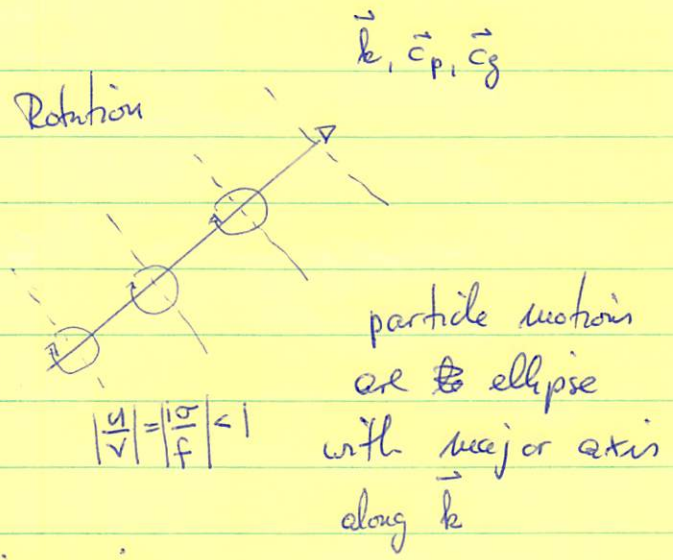 k⃗, c⃗p, c⃗g
Rotation
particle motions
are ellipse
with major axis
along k⃗
|u/v| = |iσ/f| < 1